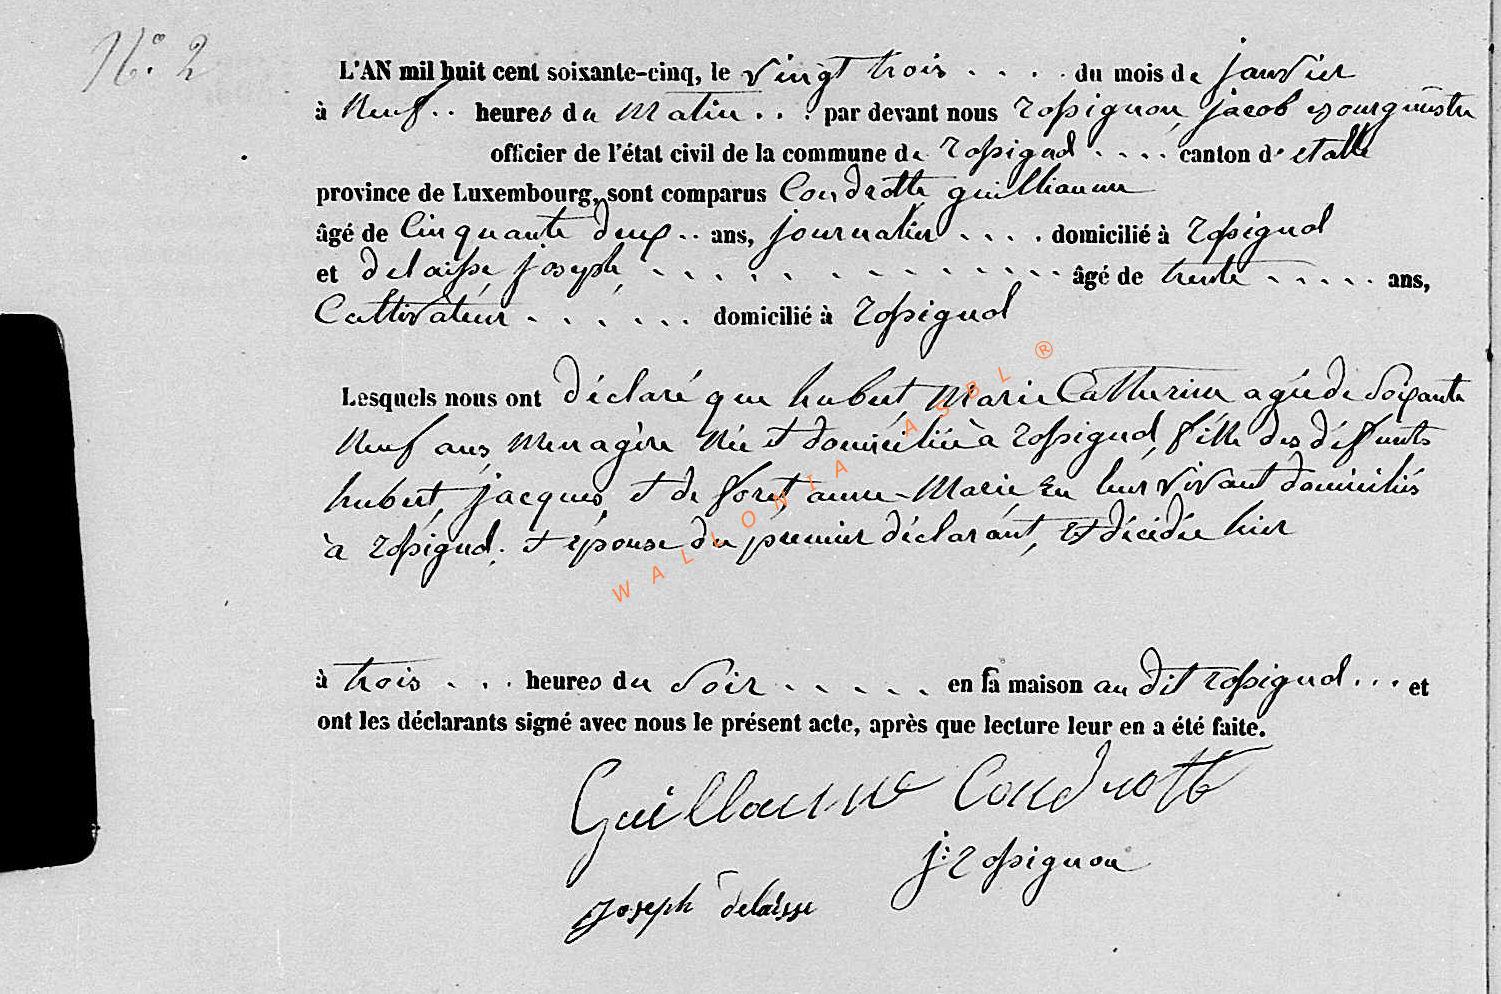 N° 2
L'AN mil huit cent soixante-cinq, le vingt trois . . . . du mois de janvier
à neuf . . heures du matin . . . par devant nous rossignon, jacob bourgmestre
officier de l'état civil de la commune de rossignol . . . . canton d'etalle
province de Luxembourg, sont comparus Condrotte guilliaume
âgé de Cinquante deux . . ans, journalier . . . . domicilié à rossignol
et delaisse, joseph, . . . . . . . . . . . . . . âgé de trente . . . . . ans,
Cultivateur . . . . . . . domicilié à rossignol
Lesquels nous ont déclaré que hubert, Marie Catherine agée de Soixante
neuf ans, menagère née et domiciliée à rossignol, fille des défunts
hubert, jacques, et de foret, anne-Marie, en leur vivant domiciliés
à rossignol. et épouse du premier déclarant, est décédée hier
à trois . . . heures du Soir . . . . . en sa maison au dit rossignol . . . et
ont les déclarants signé avec nous le présent acte, après que lecture leur en a été faite.
Guillaume Condrotte
j: rossignon
joseph delaisse
WALLONIA ASBL ®